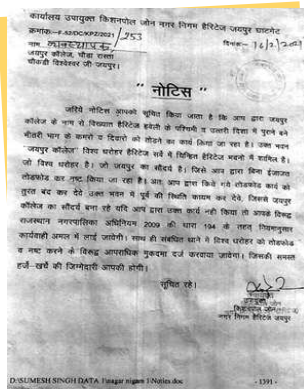 कार्यालय उपायुक्त किशनपोल जोन नगर निगम हैरिटेज जयपुर घाटगेट
क्रमांक:-F-52/DC/KPZ/2021/253
दिनांक:- 16/2/2021
नाम
जयपुर कॉलेज, चौडा रास्ता
चौकडी विश्वेश्वर जी जयपुर।
" नोटिस "
जरिये नोटिस आपको सूचित किया जाता है कि आप द्वारा जयपुर
कॉलेज के नाम से विख्यात हैरिटेज हवेली के पश्चिमी व उत्तरी दिशा मे पुराने बने
भीतरी भाग के कमरों व दिवारो को तोडने का कार्य किया जा रहा है। उक्त भवन
जयपुर कॉलेज" विश्व धरोहर हैरिटेज सर्वे में चिन्हित हैरिटेज भवनो में शामिल है।
जो विश्व धरोहर है। जो जयपुर का सौंदर्य है। जिसे आप द्वारा बिना इजाजत
तोडफोड कर नष्ट किया जा रहा है। अतः आप द्वारा किये गये तोडफोड कार्य को
तुरंत बंद कर देवे उक्त भवन में पूर्व की स्थिति कायम कर देवे, जिससे जयपुर
कॉलेज का सौंदर्य बना रहे यदि आप द्वारा उक्त कार्य नही किया तो आपके विरूद्ध
राजस्थान नगरपालिका अधिनियम 2009 की धारा 194 के तहत नियमानुसार
कार्यवाही अमल में लाई जावेगी। साथ ही संबंधित थाने में विश्व धरोहर को तोडफोड
व नष्ट करने के विरूद्ध आपराधिक मुकदमा दर्ज करवाया जावेगा। जिसकी समस्त
हर्जे-खर्चे की जिम्मेदारी आपकी होगी।
सूचित रहे।
उपायुक्त
किशनपोल जोन
नगर निगम हैरिटेज जयपुर
D:\SUMESH SINGH DATA 1\nagar nigam 1\Noties.doc
- 1391 -